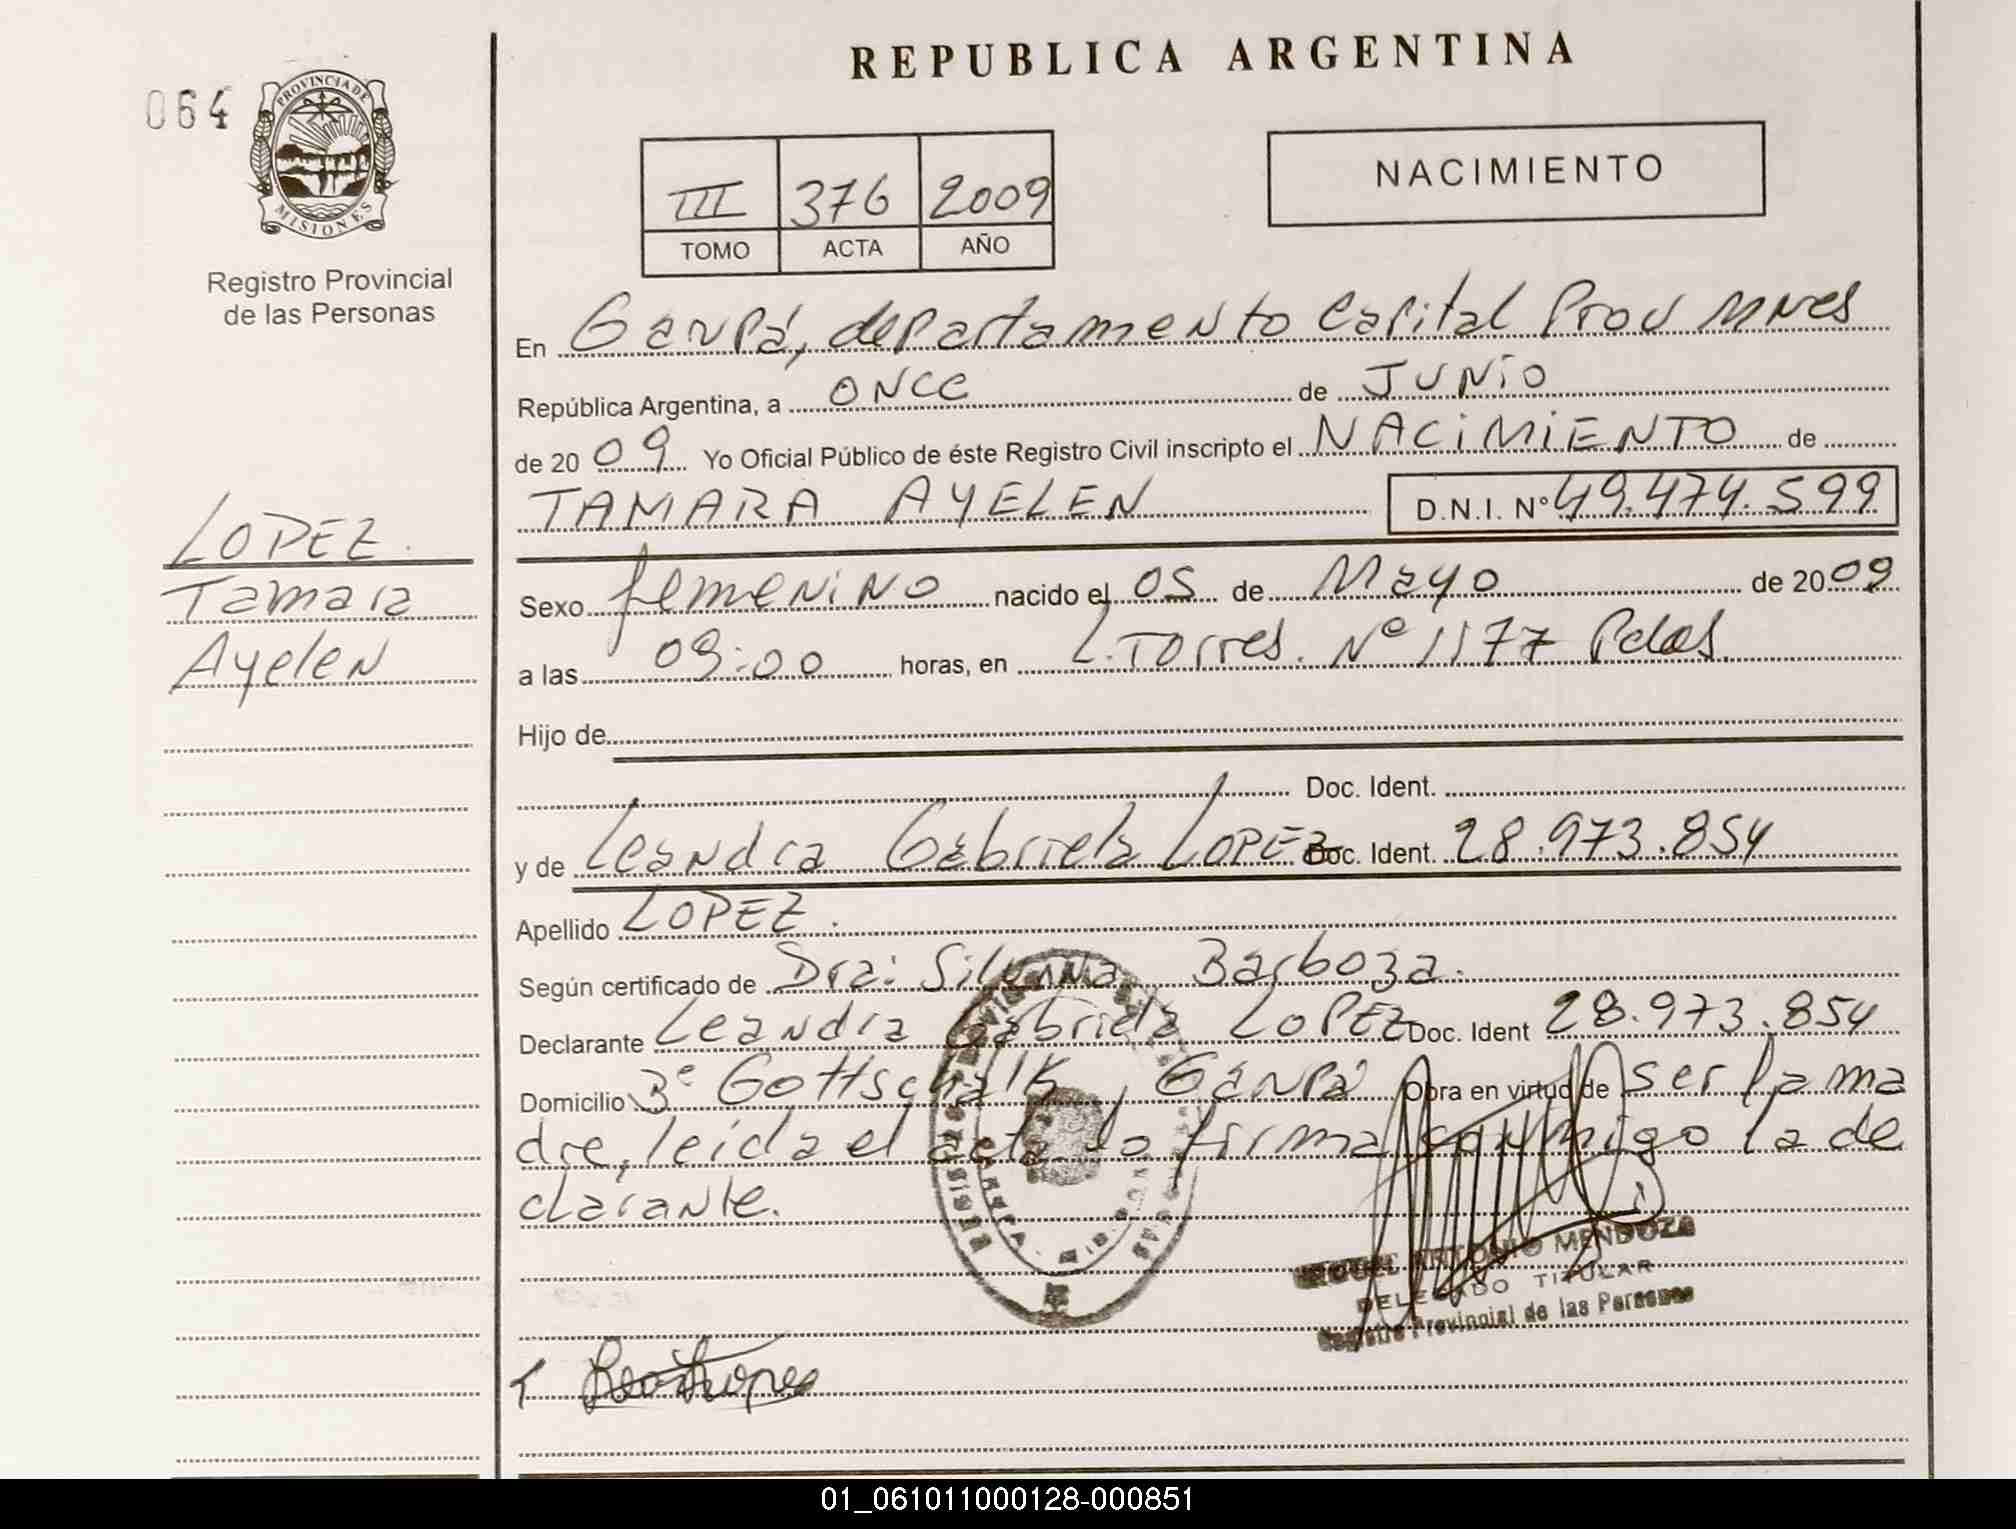 REPUBLICA ARGENTINA
064
PROVINCIA DE
MISIONES
Registro Provincial
de las Personas
III 376 2009
TOMO ACTA AÑO
NACIMIENTO
En Garupá, departamento Capital Prov Mnes
República Argentina, a ONCE de JUNIO
de 20 09 Yo Oficial Público de éste Registro Civil inscripto el NACIMIENTO de
TAMARA AYELEN D.N.I. Nº 49.474.599
LOPEZ.
Tamara
Ayelen
Sexo femenino nacido el 05 de Mayo de 20 09
a las 09:00 horas, en L. Torres. Nº 1177 Pdas.
Hijo de
Doc. Ident.
y de Leandra Gabriela LOPEZ Doc. Ident. 28.973.854
Apellido LOPEZ.
Según certificado de Dra: Silvana Barboza.
Declarante Leandra Gabriela LOPEZ Doc. Ident 28.973.854
Domicilio Bº Gottschalk, Garupá Obra en virtud de ser la ma
dre, leída el acta la firma conmigo la de
clarante.
MIGUEL ANTONIO MENDOZA
DELEGADO TITULAR
Registro Provincial de las Personas
01_061011000128-000851